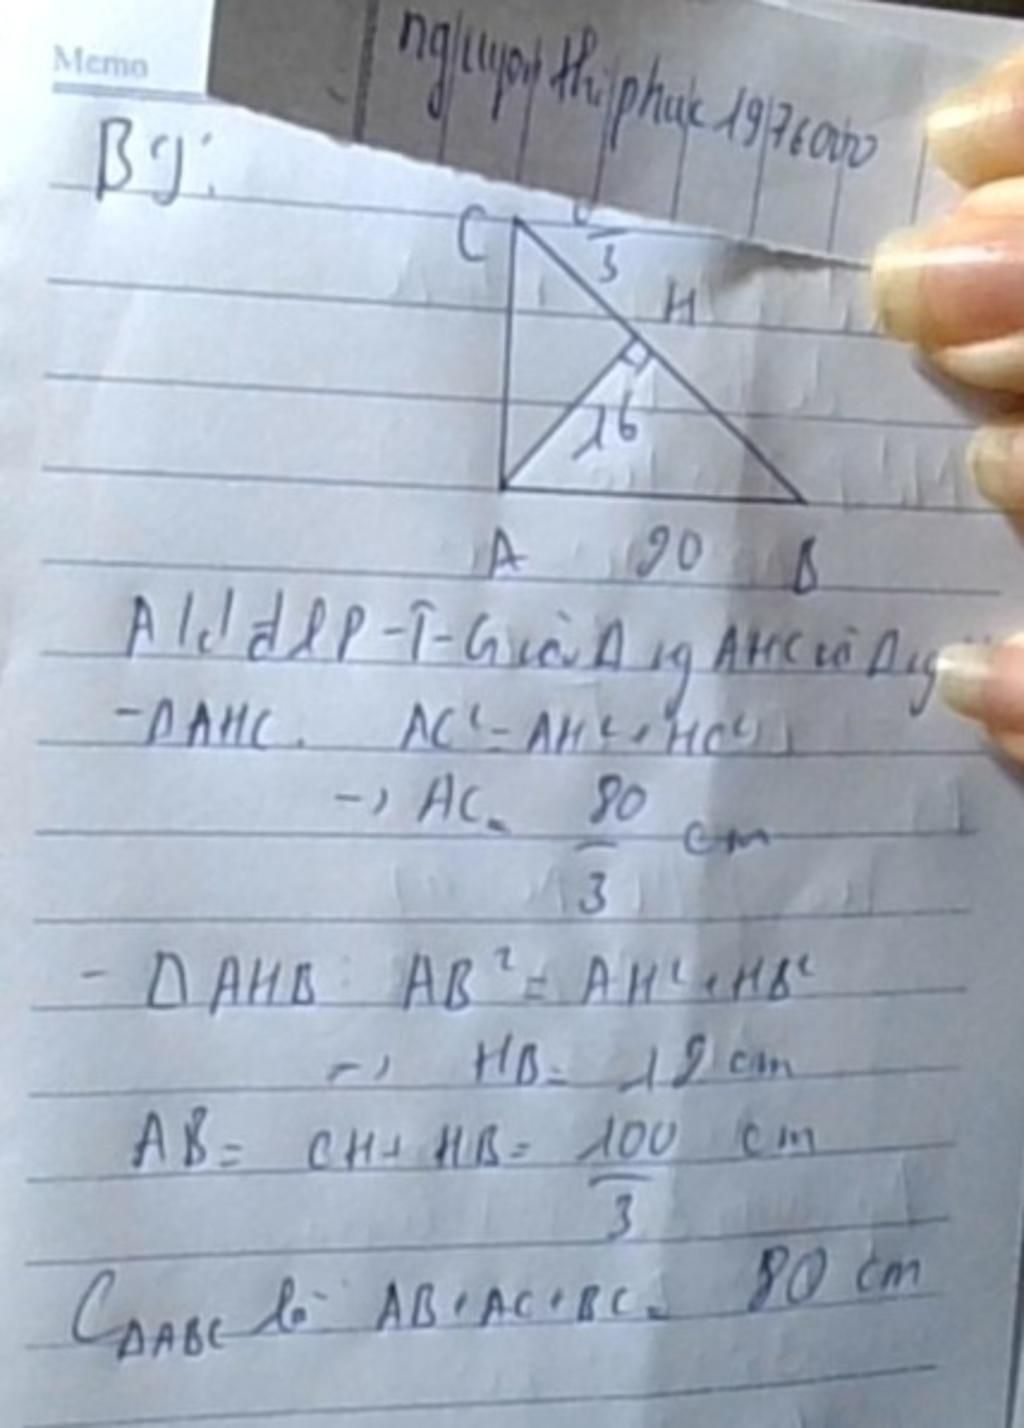 Memo
nguyen thi phuc 1976000
Bg:
C
3
H
16
A 20 B
AHC
- ΔAHC. AC² = AH² + HC²
→ AC = 80/3 cm
- ΔAHB: AB² = AH² + HB²
→ HB = 12 cm
AB = CH + HB = 100/3 cm
CΔABC là AB + AC + BC = 80 cm